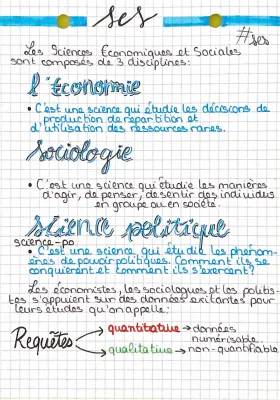 ses
#ses
Les Sciences Économiques et Sociales
sont composés de 3 disciplines:
l'Économie
• C'est une science qui étudie les décisions de
production de repartition et
d'utilisation des ressources rares.
Sociologie
• C'est une science qui étudie les manières
d'agir, de penser, de sentir des individus
en groupe ou en société.
science politique
science-po
• C'est une science qui étudie les phénom-
ènes de pouvoir politiques. Comment ils se
conquièrent et comment ils s'exercent?
Les économistes, les sociologues et les politis-
tes s'appuient sur des données existantes pour
leurs études qu'on appelle:
Requêtes
quantitative → données
numérisable.
qualitative → non-quantifiable